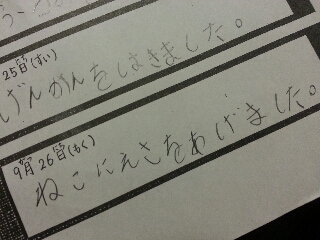 25日(すい)
げんかんをはきました。
9月26日(もく)
ねこにえさをあげました。